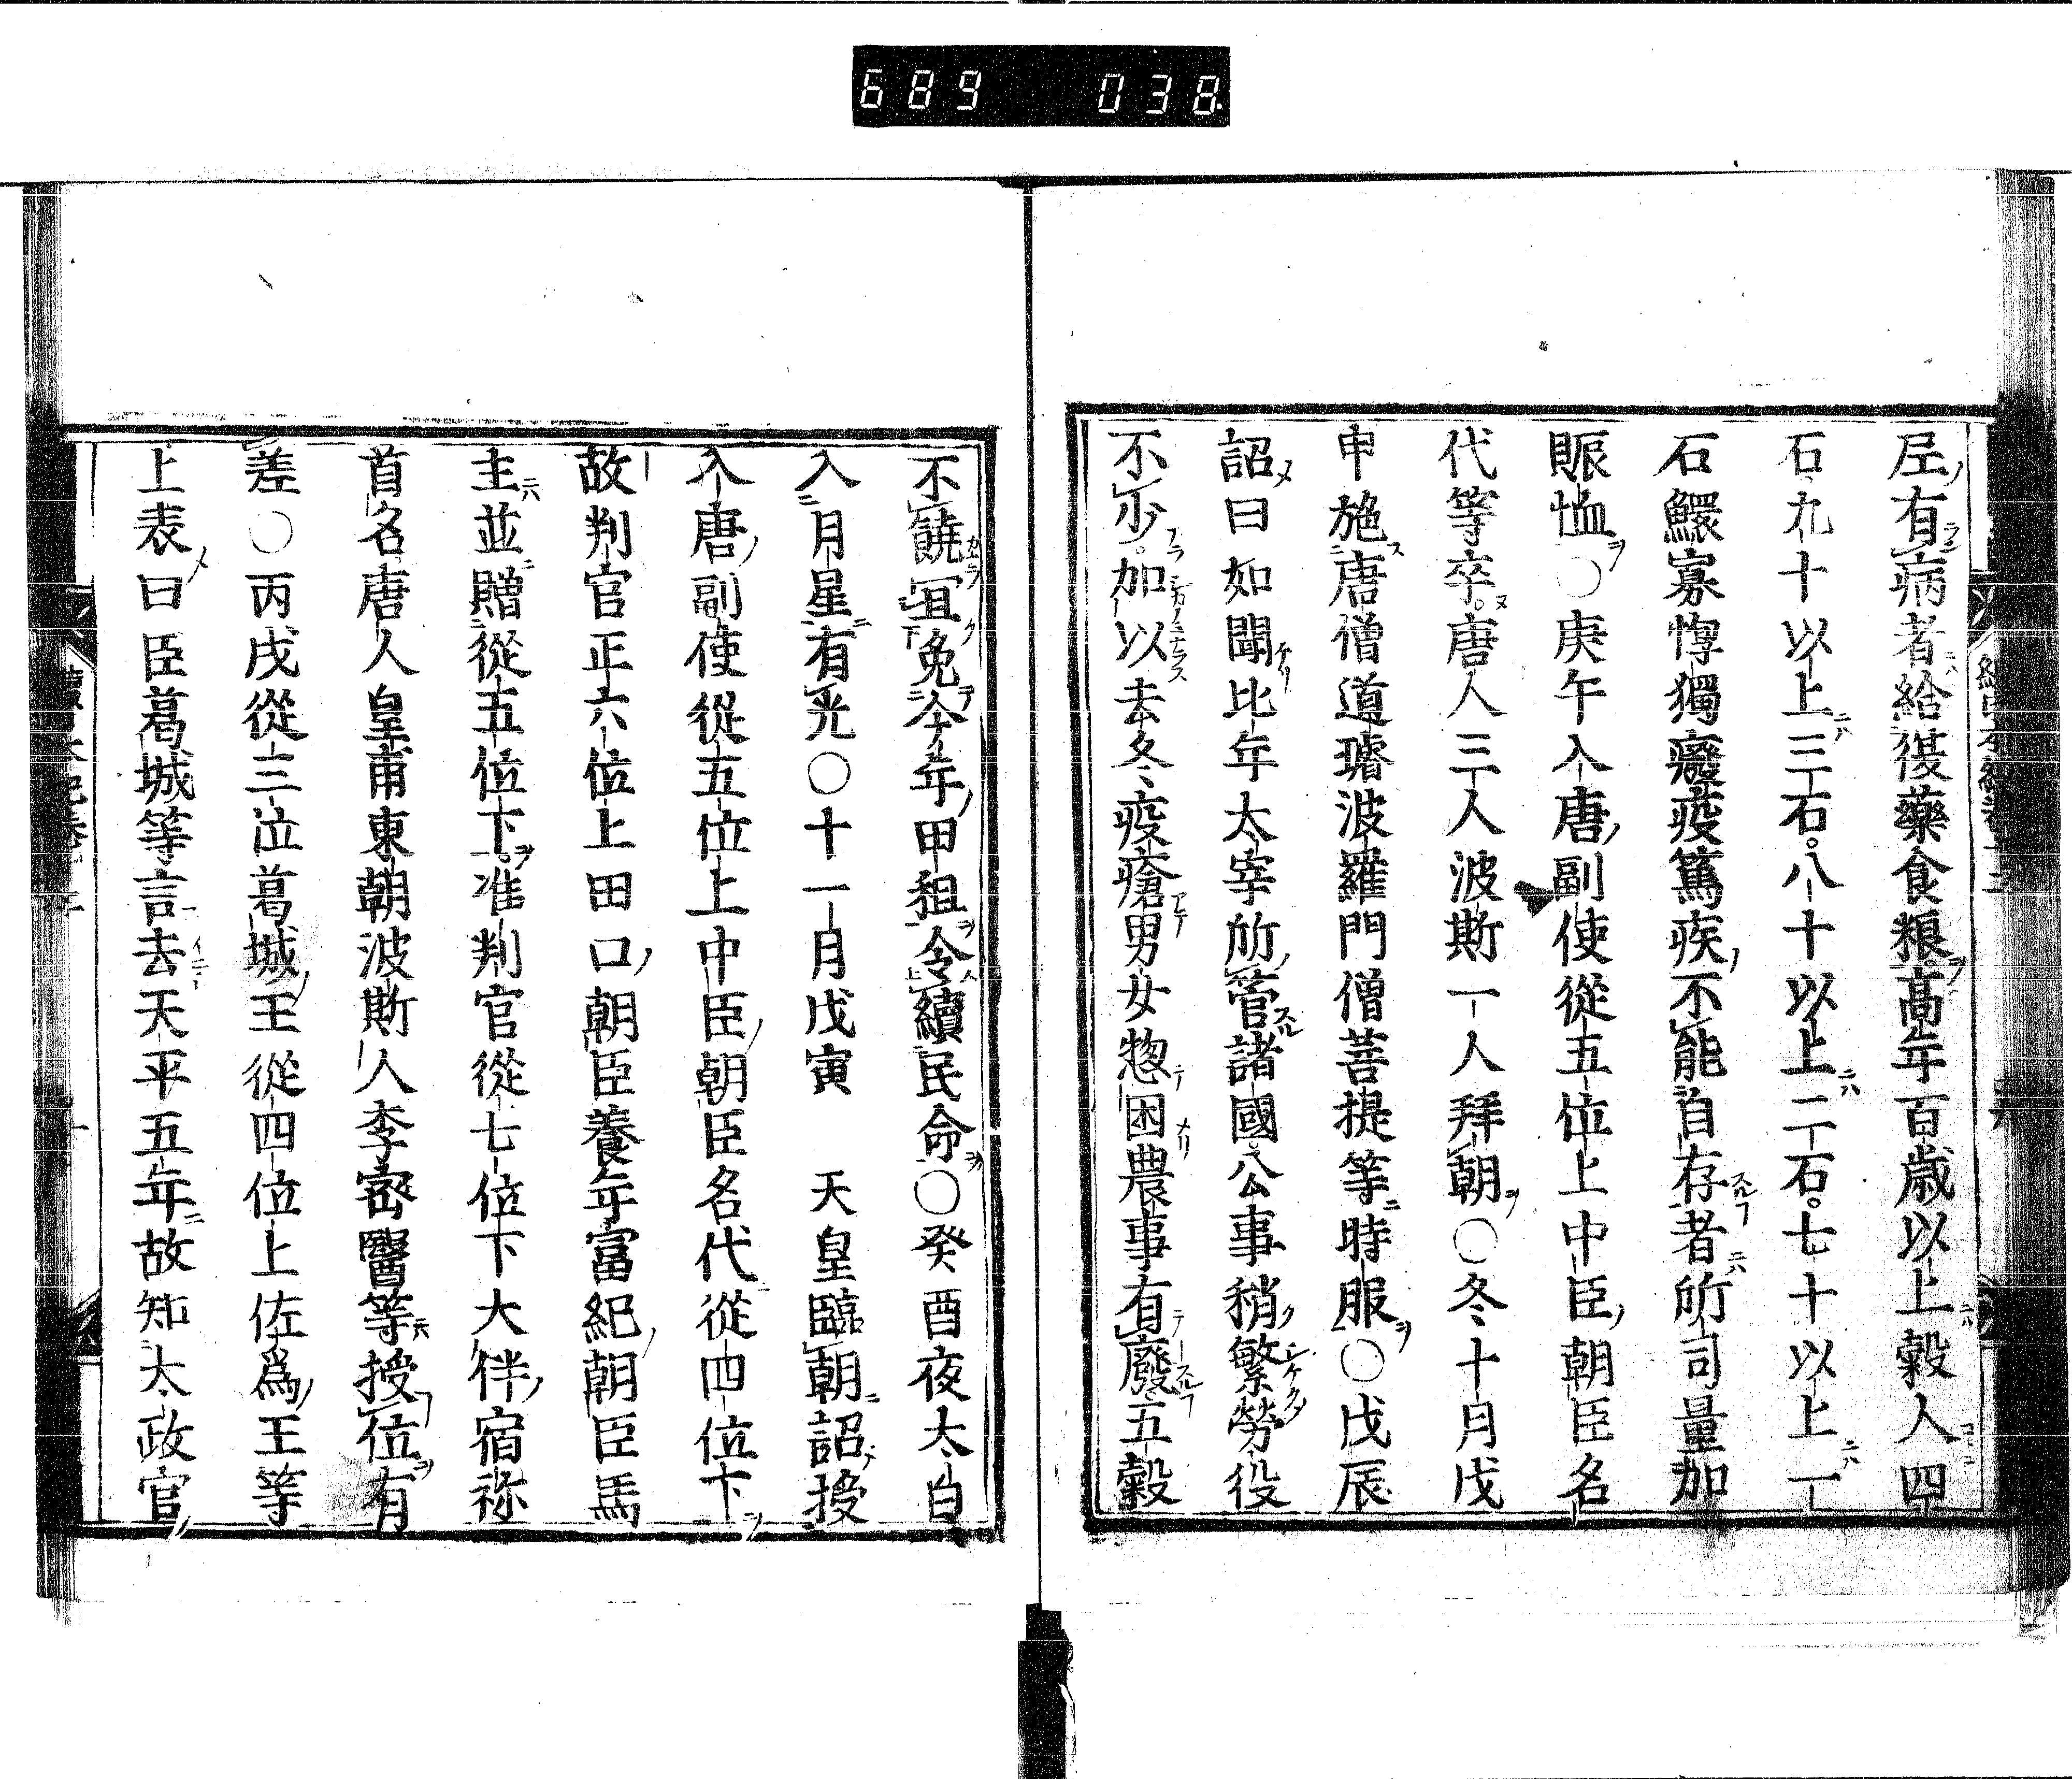 689 038
𡰱有病者給復藥食粮高年百歲以上穀人四
石九十以上三石。八十以上二石。七十以上一
石鰥寡惸獨癈疫篤疾不能自存者所司量加
賑恤○庚午入唐副使從五位上中臣朝臣名
代等卒。唐人三人波斯一人拜朝○冬十月戊
申施唐僧道璿波羅門僧菩提等時服○戊辰
詔曰如聞比年太宰所管諸國公事稍繁勞役
不少。加以去冬疫瘡男女惣困農事有廢五穀
不饒宜免今年田租令續民命○癸酉夜太白
入月星有光○十一月戊寅 天皇臨朝詔授
入唐副使從五位上中臣朝臣名代從四位下
故判官正六位上田口朝臣養年富紀朝臣馬
主並贈從五位下。准判官從七位下大伴宿祢
首名唐人皇甫東朝波斯人李密醫等授位有
差○丙戌從三位葛城王從四位上佐爲王等
上表曰臣葛城等言去天平五年故知太政官